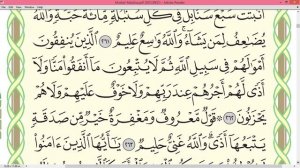 أَنۢبَتَتْ سَبْعَ سَنَابِلَ فِى كُلِّ سُنۢبُلَةٍ مِّا۟ئَةُ حَبَّةٍ وَٱللَّهُ
يُضَـٰعِفُ لِمَن يَشَآءُ وَٱللَّهُ وَٰسِعٌ عَلِيمٌ ٢٦١ ٱلَّذِينَ يُنفِقُونَ
أَمْوَٰلَهُمْ فِى سَبِيلِ ٱللَّهِ ثُمَّ لَا يُتْبِعُونَ مَآ أَنفَقُوا۟ مَنًّا وَلَآ
أَذًى لَّهُمْ أَجْرُهُمْ عِندَ رَبِّهِمْ وَلَا خَوْفٌ عَلَيْهِمْ وَلَا هُمْ
يَحْزَنُونَ ٢٦٢ قَوْلٌ مَّعْرُوفٌ وَمَغْفِرَةٌ خَيْرٌ مِّن صَدَقَةٍ
يَتْبَعُهَآ أَذًى وَٱللَّهُ غَنِىٌّ حَلِيمٌ ٢٦٣ يَـٰٓأَيُّهَا ٱلَّذِينَ ءَامَنُوا۟